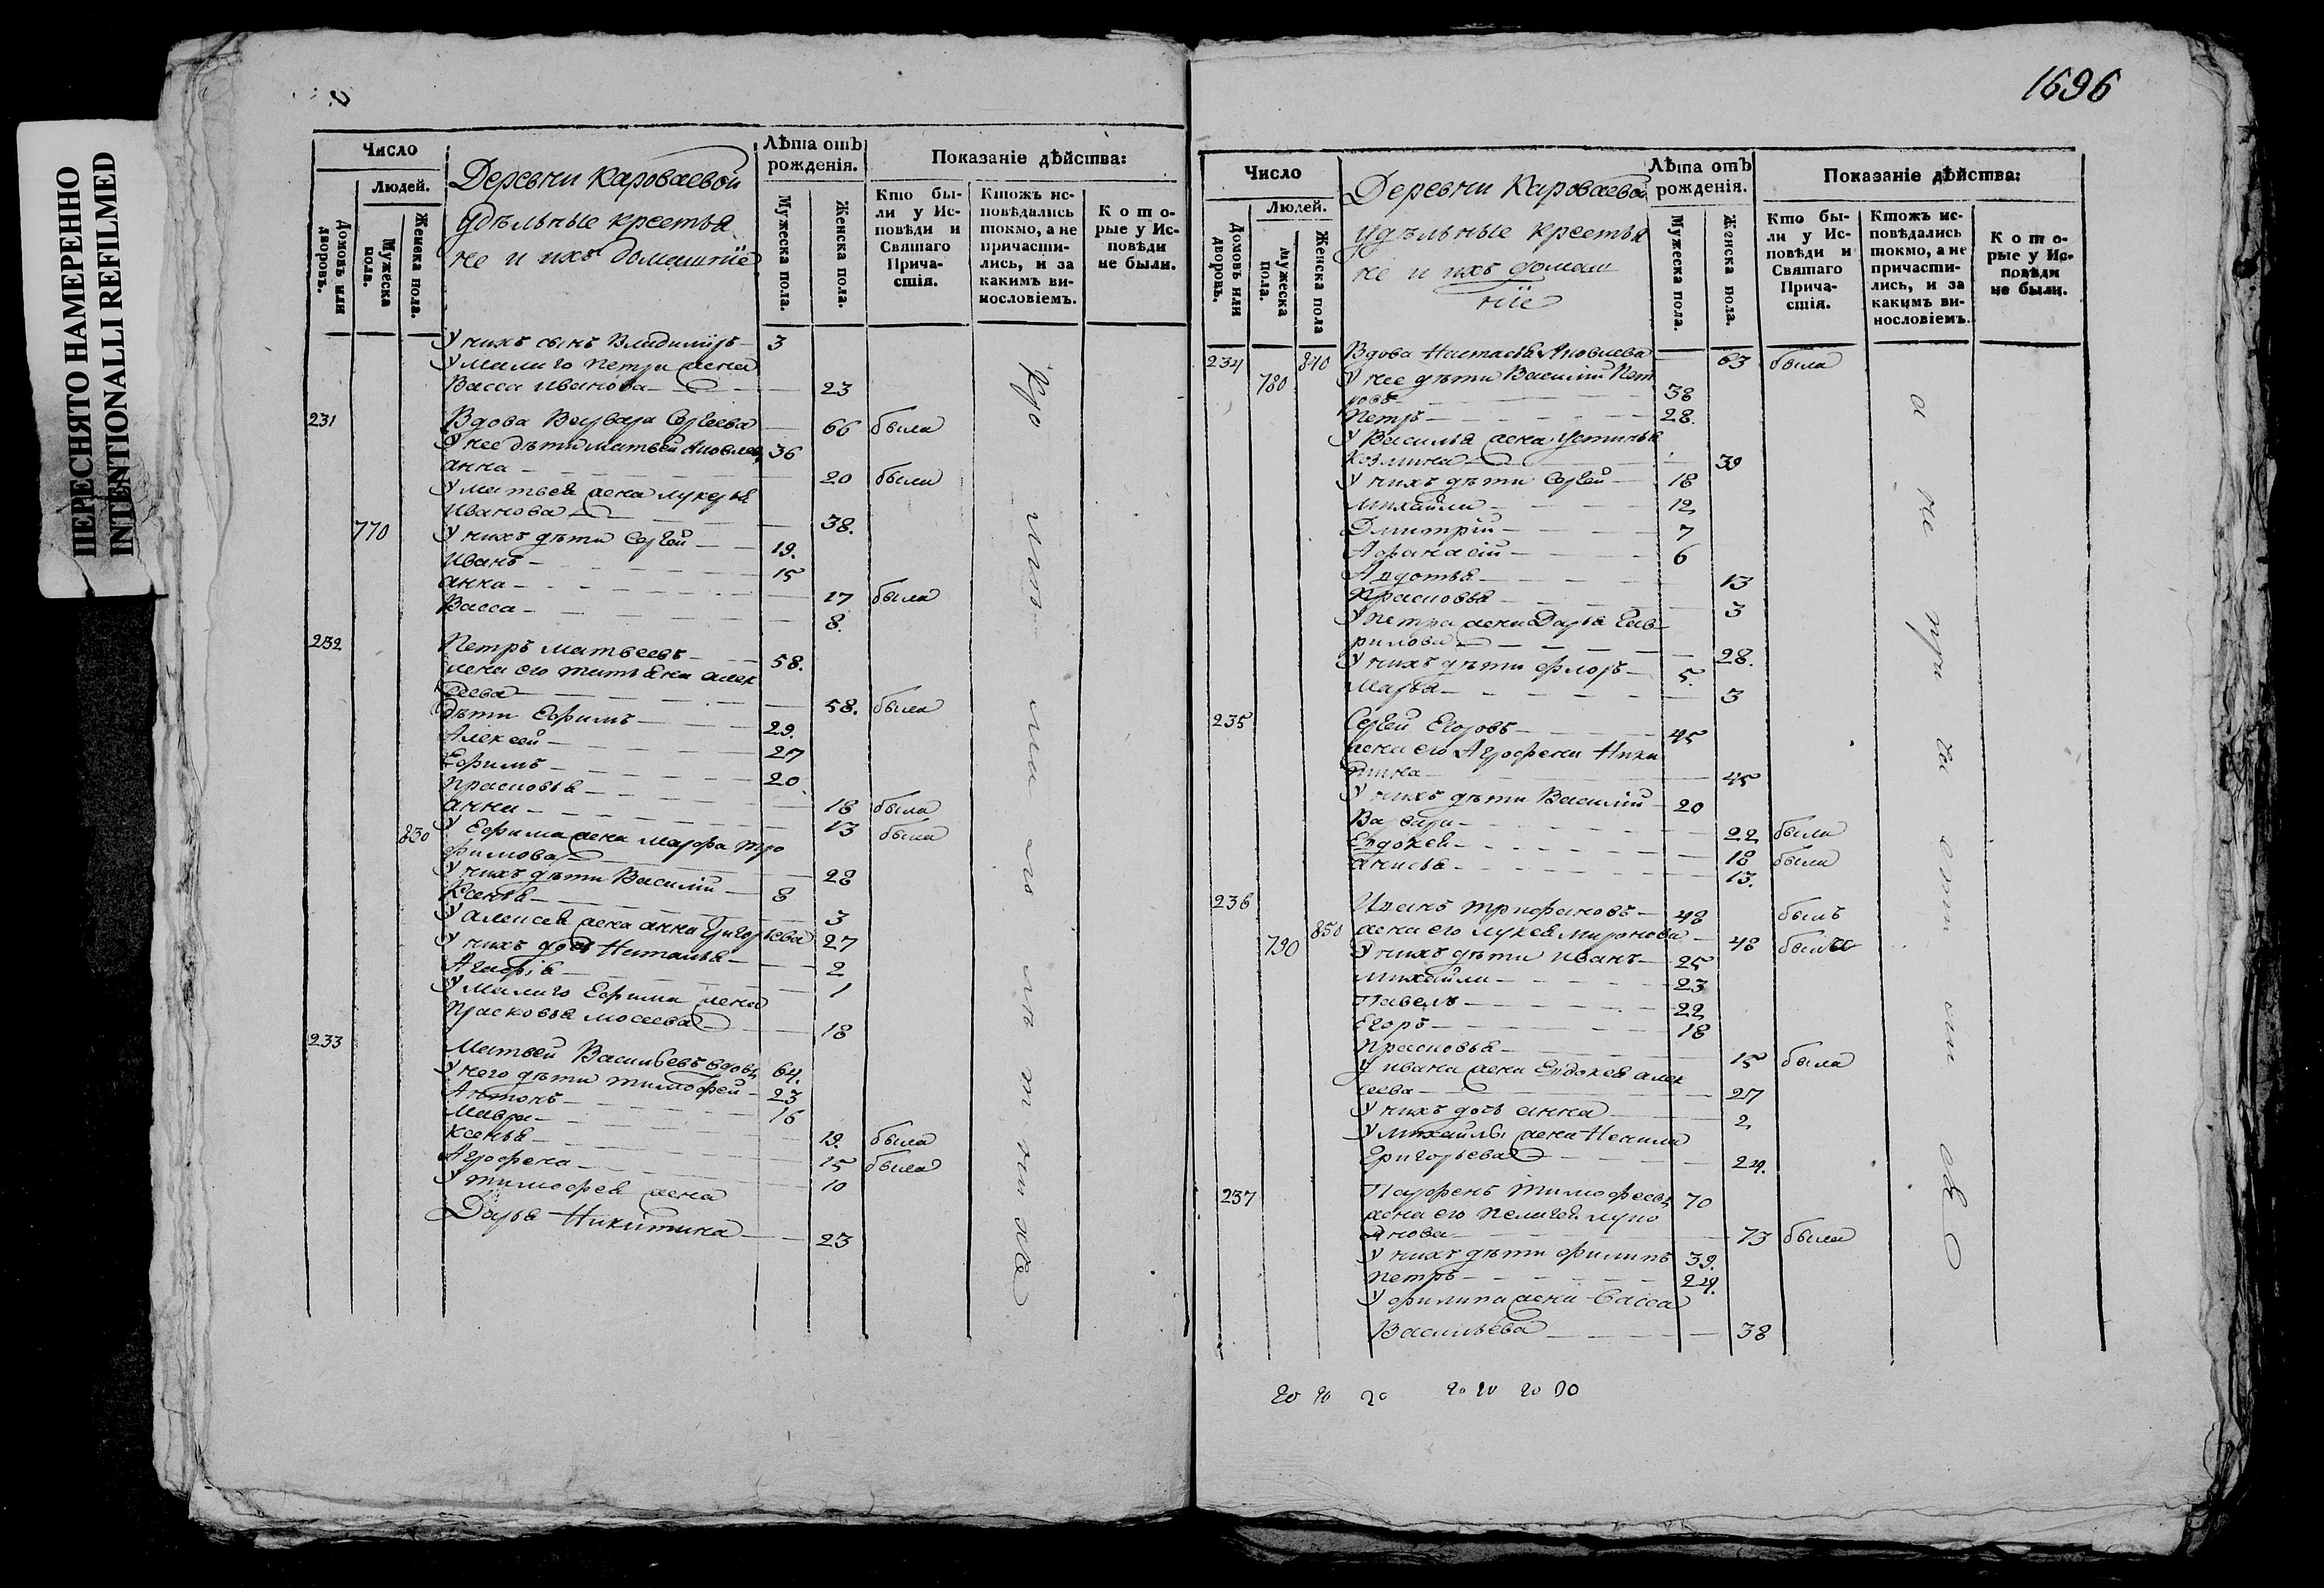 ПЕРЕСНЯТО НАМЕРЕННО
INTENTIONALLI REFILMED
Число
Людей.
Домовъ или дворовъ.
Мужеска пола.
Женска пола.
Деревни Короваевой
удѣльные крестья
не и ихъ домашніе
Лѣта отъ рожденія.
Мужеска пола.
Женска пола.
Показаніе дѣйства:
Кто бы-
ли у Ис-
повѣди и
Святаго
Прича-
стія.
Ктожъ ис-
повѣдались
токмо, а не
причасти-
лись, и за
какимъ ви-
нословіемъ.
К о т о-
рые у Ис-
повѣди
не были.
У нихъ сынъ Владимиръ 3
У малаго Петра жена
Васса Иванова 23
231 Вдова Варвара Сергеева 66 была
У нее дѣти Матвей Яковлевъ 36
Анна 20 была
У Матвея жена Лукерья
Иванова 38.
770 У нихъ дѣти Сергей 19.
Иванъ 15
Анна 17 была
Васса 8.
232 Петръ Матвеевъ 58.
жена его Татьяна Алек
сеева 58. была
Дѣти Ефимъ 29.
Алексей 27
Ефимъ 20.
Прасковья 18 была
Анна 13 была
830 У Ефима жена Марфа Тро
фимова 28
У нихъ дѣти Василій 8
Ксенья 3
У Алексея жена Анна Григорьева 27
У нихъ дочь Наталья 2
1
У малаго Ефима жена
Прасковья Мосеева 18
233 Матвей Васильевъ вдовъ 64.
У него дѣти Тимофей 23
Антонъ 16
Мавра 19. была
Ксенья 15 была
Агрофена 10
У Тимофея жена
Дарья Никитина 23
1696
Число
Людей.
Домовъ или дворовъ.
Мужеска пола.
Женска пола
Деревни Короваевой
удѣльные крестья
не и ихъ домаш
ніе
Лѣта отъ рожденія.
Мужеска пола.
Женска пола.
Показаніе дѣйства:
Кто бы-
ли у Ис-
повѣди и
Святаго
Прича-
стія.
Ктожъ ис-
повѣдались
токмо, а не
причасти-
лись, и за
какимъ ви-
нословіемъ.
К о т о-
рые у Ис-
повѣди
не были.
234 840 Вдова Настасья Яковлева 63 была
780 У нее дѣти Василій Пет
ровъ 38
Петръ 28.
У Василья жена Устинья
Козмина 39
У нихъ дѣти Сергей 18
Михайла 12
Дмитрій 7
Афанасій 6
Авдотья 13
Прасковья 3
У Петра жена Дарья Гав
рилова 28.
У нихъ дѣти Флоръ 5.
Марья 3
235 Сергей Егоровъ 45
жена его Агрофена Ники
тина 45
У нихъ дѣти Василій 20
Варвара 22 была
Евдокея 18 была
Анисья 13.
236 Иванъ Трифановъ 48 былъ
850 жена его Лукея Миронова 48 была
790 У нихъ дѣти Иванъ 25
Михайла 23
Павелъ 22
Егоръ 18
Прасковья 15 была
У Ивана жена Евдокея Алек
сеева 27
У нихъ дочь Анна 2
У Михайлы жена Ненила
Григорьева 24.
237 Парфенъ Тимофеевъ 70
жена его Пелагея Лукь
янова 73 была
У нихъ дѣти Филипъ 39.
Петръ 24.
У Филипа жена Васса
Васильева 38
20 20 20 20 20 20 20